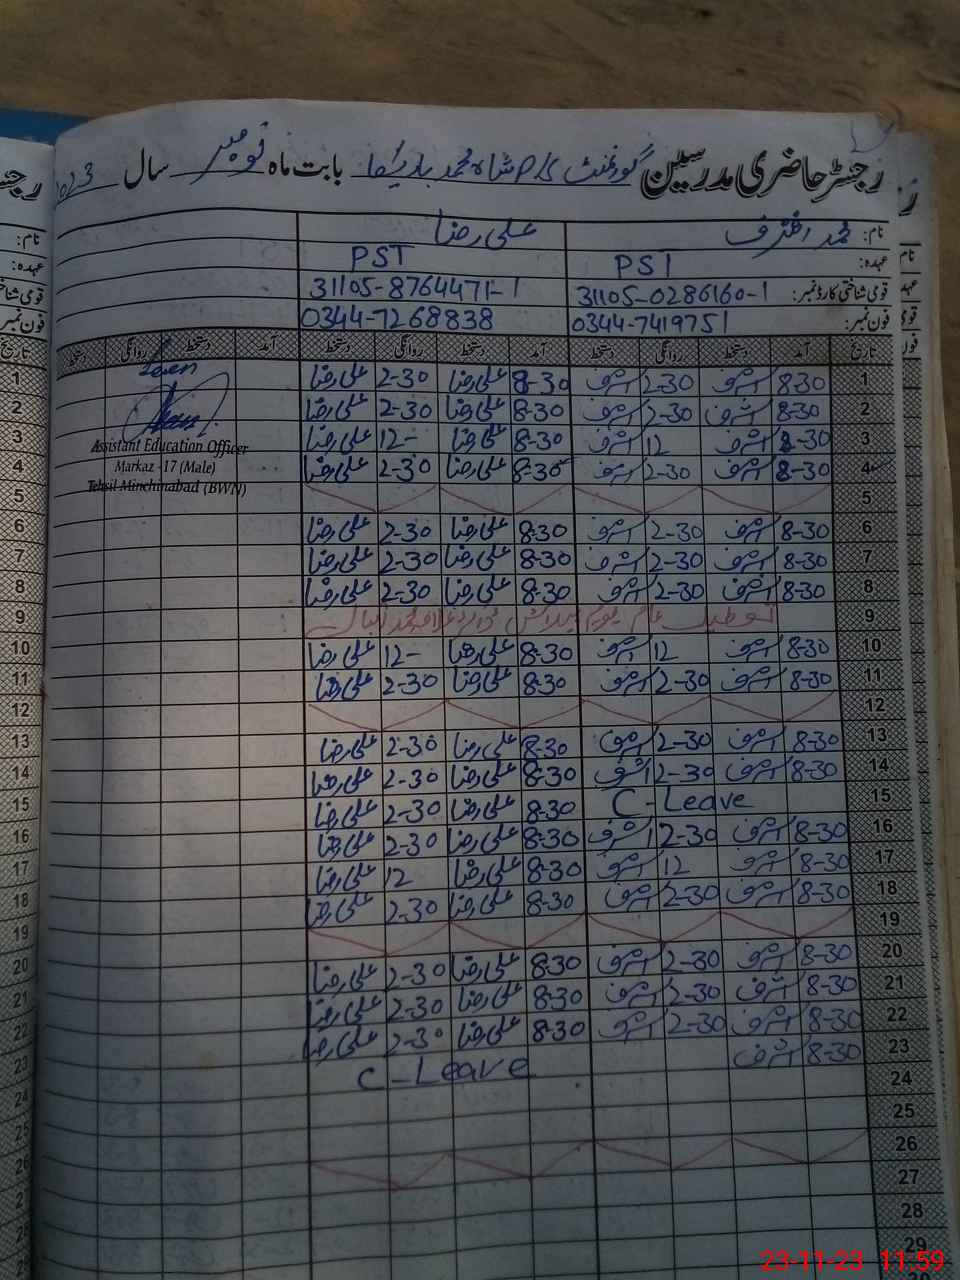 رجسٹر حاضری مدرسین گورنمنٹ بابت ماہ نومبر سال
نام: محمد اشرف علی رضا
عہدہ: PST PST
قومی شناختی کارڈ نمبر: 31105-0286160-1 31105-8764471-1
فون نمبر: 0344-7419751 0344-7268838
تاریخ آمد دستخط روانگی دستخط آمد دستخط روانگی دستخط آمد دستخط روانگی دستخط
1 8-30 اشرف 2-30 اشرف 8-30 علی رضا 2-30 علی رضا
2 8-30 اشرف 2-30 اشرف 8-30 علی رضا 2-30 علی رضا
3 8-30 اشرف 12 اشرف 8-30 علی رضا 12- علی رضا
4 8-30 اشرف 2-30 اشرف 8-30 علی رضا 2-30 علی رضا
Assistant Education Officer
Markaz -17 (Male)
Tehsil Minchinabad (BWN)
5
6 8-30 اشرف 2-30 اشرف 8-30 علی رضا 2-30 علی رضا
7 8-30 اشرف 2-30 اشرف 8-30 علی رضا 2-30 علی رضا
8 8-30 اشرف 2-30 اشرف 8-30 علی رضا 2-30 علی رضا
9 تعطیل عام یوم پیدائش
10 8-30 اشرف 12 اشرف 8-30 علی رضا 12- علی رضا
11 8-30 اشرف 2-30 اشرف 8-30 علی رضا 2-30 علی رضا
12
13 8-30 اشرف 2-30 اشرف 8-30 علی رضا 2-30 علی رضا
14 8-30 اشرف 2-30 اشرف 8-30 علی رضا 2-30 علی رضا
15 C-Leave 8-30 علی رضا 2-30 علی رضا
16 8-30 اشرف 2-30 اشرف 8-30 علی رضا 2-30 علی رضا
17 8-30 اشرف 12 اشرف 8-30 علی رضا 12 علی رضا
18 8-30 اشرف 2-30 اشرف 8-30 علی رضا 2-30 علی رضا
19
20 8-30 اشرف 2-30 اشرف 8-30 علی رضا 2-30 علی رضا
21 8-30 اشرف 2-30 اشرف 8-30 علی رضا 2-30 علی رضا
22 8-30 اشرف 2-30 اشرف 8-30 علی رضا 2-30 علی رضا
23 8-30 اشرف C-Leave
24
25
26
27
28
29
23-11-23 11:59